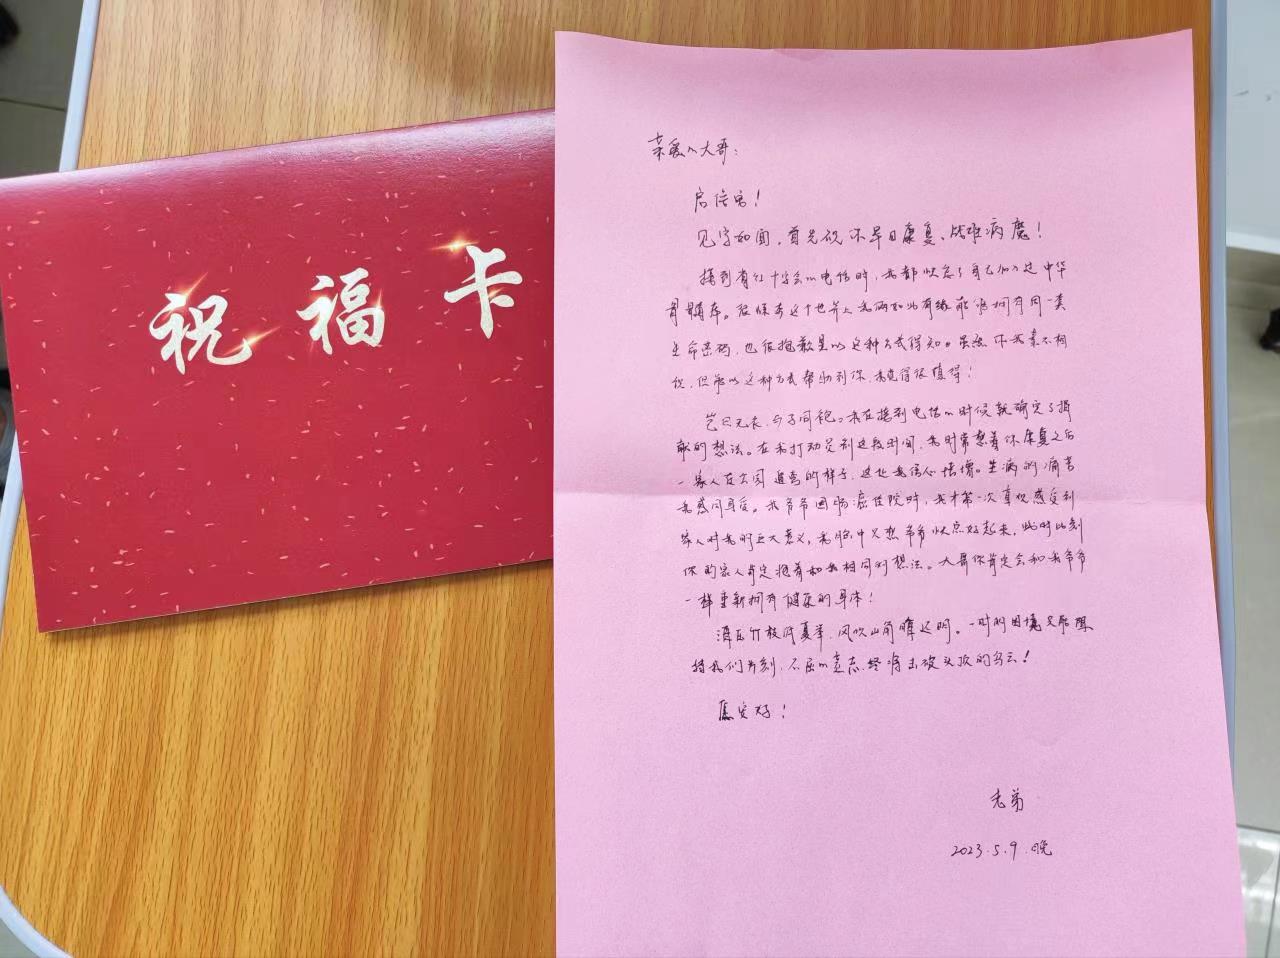 祝福卡
亲爱的大哥：
启信安！
见字如面，首先祝你早日康复、战胜病魔！
接到省红十字会的电话时，我都快忘了自己加入过中华
骨髓库。很惊喜这个世界上我俩如此有缘能够拥有同一类
生命密码，也很抱歉是以这种方式得知。虽然你我素不相
识，但能以这种方式帮助到你，我觉得很值得！
岂曰无衣，与子同袍。我在接到电话的时候就确定了捐
献的想法。在我打动员剂这段时间，我时常想着你康复之后
一家人在公园 的样子，这让我信心倍增。生病的痛苦
我感同身受。我爷爷因肠癌住院时，我才第一次直观感受到
家人对我的巨大意义，我脑中只想爷爷快点好起来，此时此刻
你的家人肯定抱着和我相同的想法。大哥你肯定会和我爷爷
一样重新拥有健康的身体！
滴在竹枝 风吹山角晦还明。一时的困境只能
持我们片刻，不屈的意志终将击破头顶的乌云！
愿安好！
老弟
2023.5.9.晚